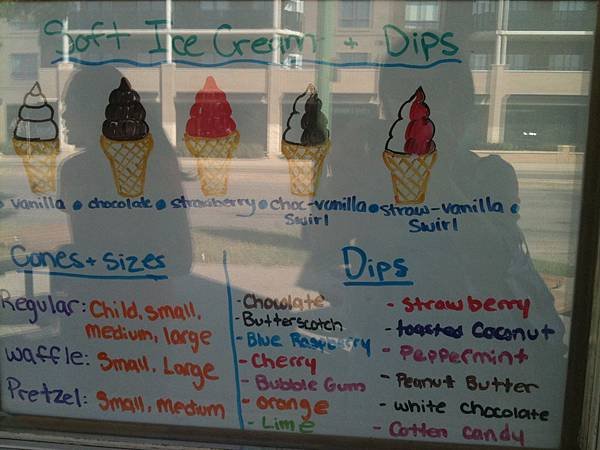 Soft Ice Cream + Dips
• vanilla • chocolate • strawberry • choc-vanilla • straw-vanilla •
Swirl Swirl
Cones + Sizes
Regular: Child, small,
medium, large
waffle: Small, Large
Pretzel: Small, medium
Dips
- Chocolate
- Butterscotch
- Blue Raspberry
- Cherry
- Bubble Gum
- orange
- Lime
- strawberry
- toasted Coconut
- Peppermint
- Peanut Butter
- white chocolate
- Cotten candy